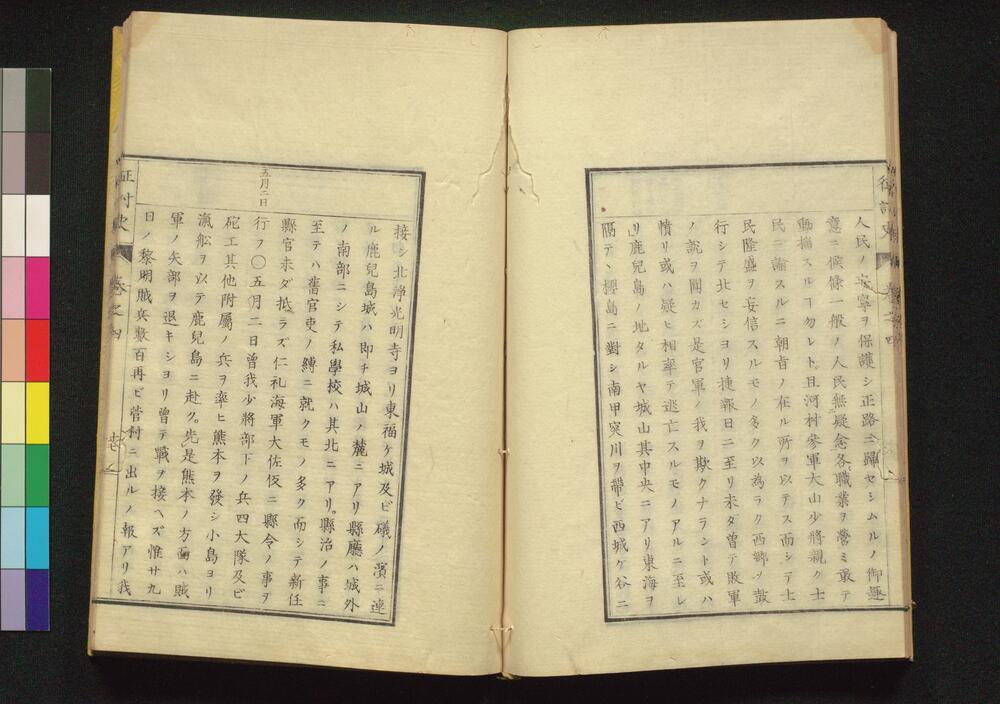 人民ノ安寧ヲ保護シ正路ニ歸セシムルノ御趣
意ニ候條一般ノ人民無疑念各職業ヲ營ミ敢テ
動揺スル勿レト且河村參軍大山少將親ク士
民ニ諭スルニ朝旨ノ在ル所ヲ以テス而シテ士
民隆盛ヲ妄信スルモノ多ク以為ラク西郷ソ鼓
行シテ北セシヨリ捷報日ニ至リ未タ曽テ敗軍
ノ説ヲ聞カズ是官軍ノ我ヲ欺クナラント或ハ
憤リ或ハ疑ヒ相率テ逃亡スルモノアルニ至レ
リ鹿兒島ノ地タルヤ城山其中央ニアリ東海ヲ
隔テヽ櫻島ニ對シ南甲突川ヲ帶ビ西城ケ谷ニ
征討史
接シ北淨光明寺ヨリ東福ケ城及ビ磯ノ濱ニ連
ル鹿兒島城ハ即チ城山ノ麓ニアリ縣廳ハ城外
ノ南部ニシテ私學校ハ其北ニアリ縣治ノ事ニ
至テハ舊官吏ノ縛ニ就クモノ多ク而シテ新任
縣官未ダ抵ラズ仁礼海軍大佐仮ニ縣令ノ事ヲ
五月二日
行フ〇五月二日曽我少將部下ノ兵四大隊及ビ
砲工其他附屬ノ兵ヲ率ヒ熊本ヲ發シ小島ヨリ
滊舩ヲ以テ鹿兒島ニ赴ク先是熊本ノ方面ハ賊
軍ノ矢部ヲ退キシヨリ曽テ戰ヲ接ヘズ惟廿九
日ノ黎明賊兵數百再ビ菅村ニ出ルノ報アリ我
征討史 卷之四